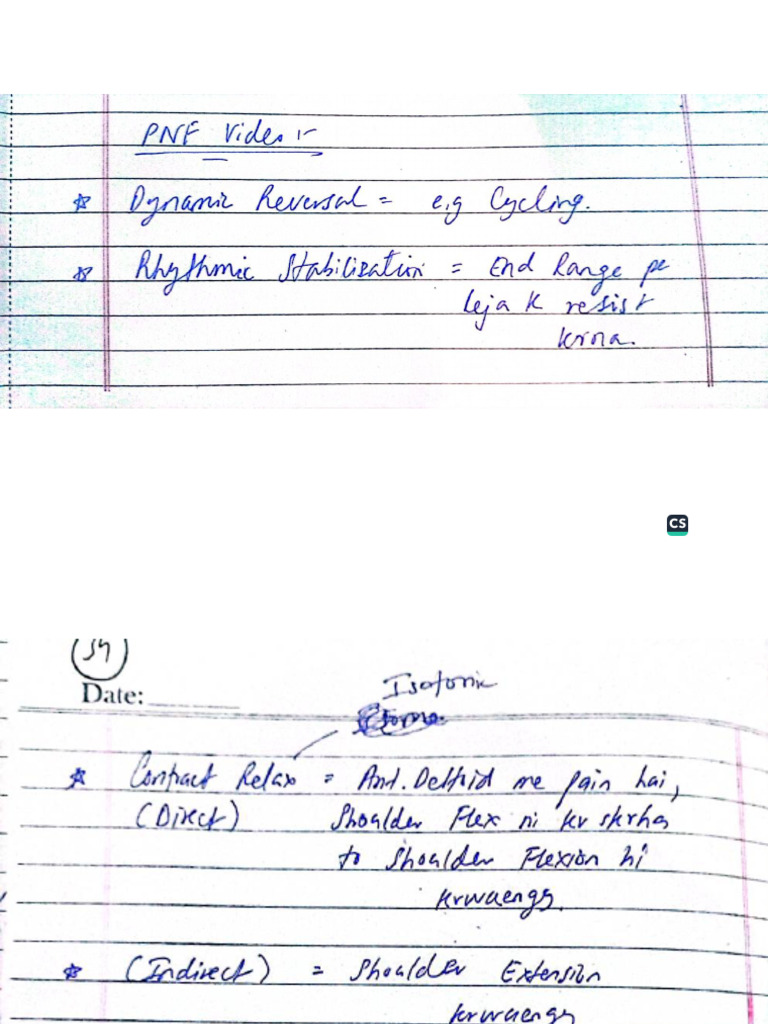 PNF Video :-
☆ Dynamic Reversal = e.g Cycling.
☆ Rhythmic Stabilization = End Range pe
leja k resist
krna.
CS
54
Date:
Isotonic
☆ Contract Relax = Ant. Deltoid me pain hai,
(Direct) Shoulder Flex ni kr skrha
to Shoulder Flexion hi
krwaenge.
☆ (Indirect) = Shoulder Extension
krwaenge